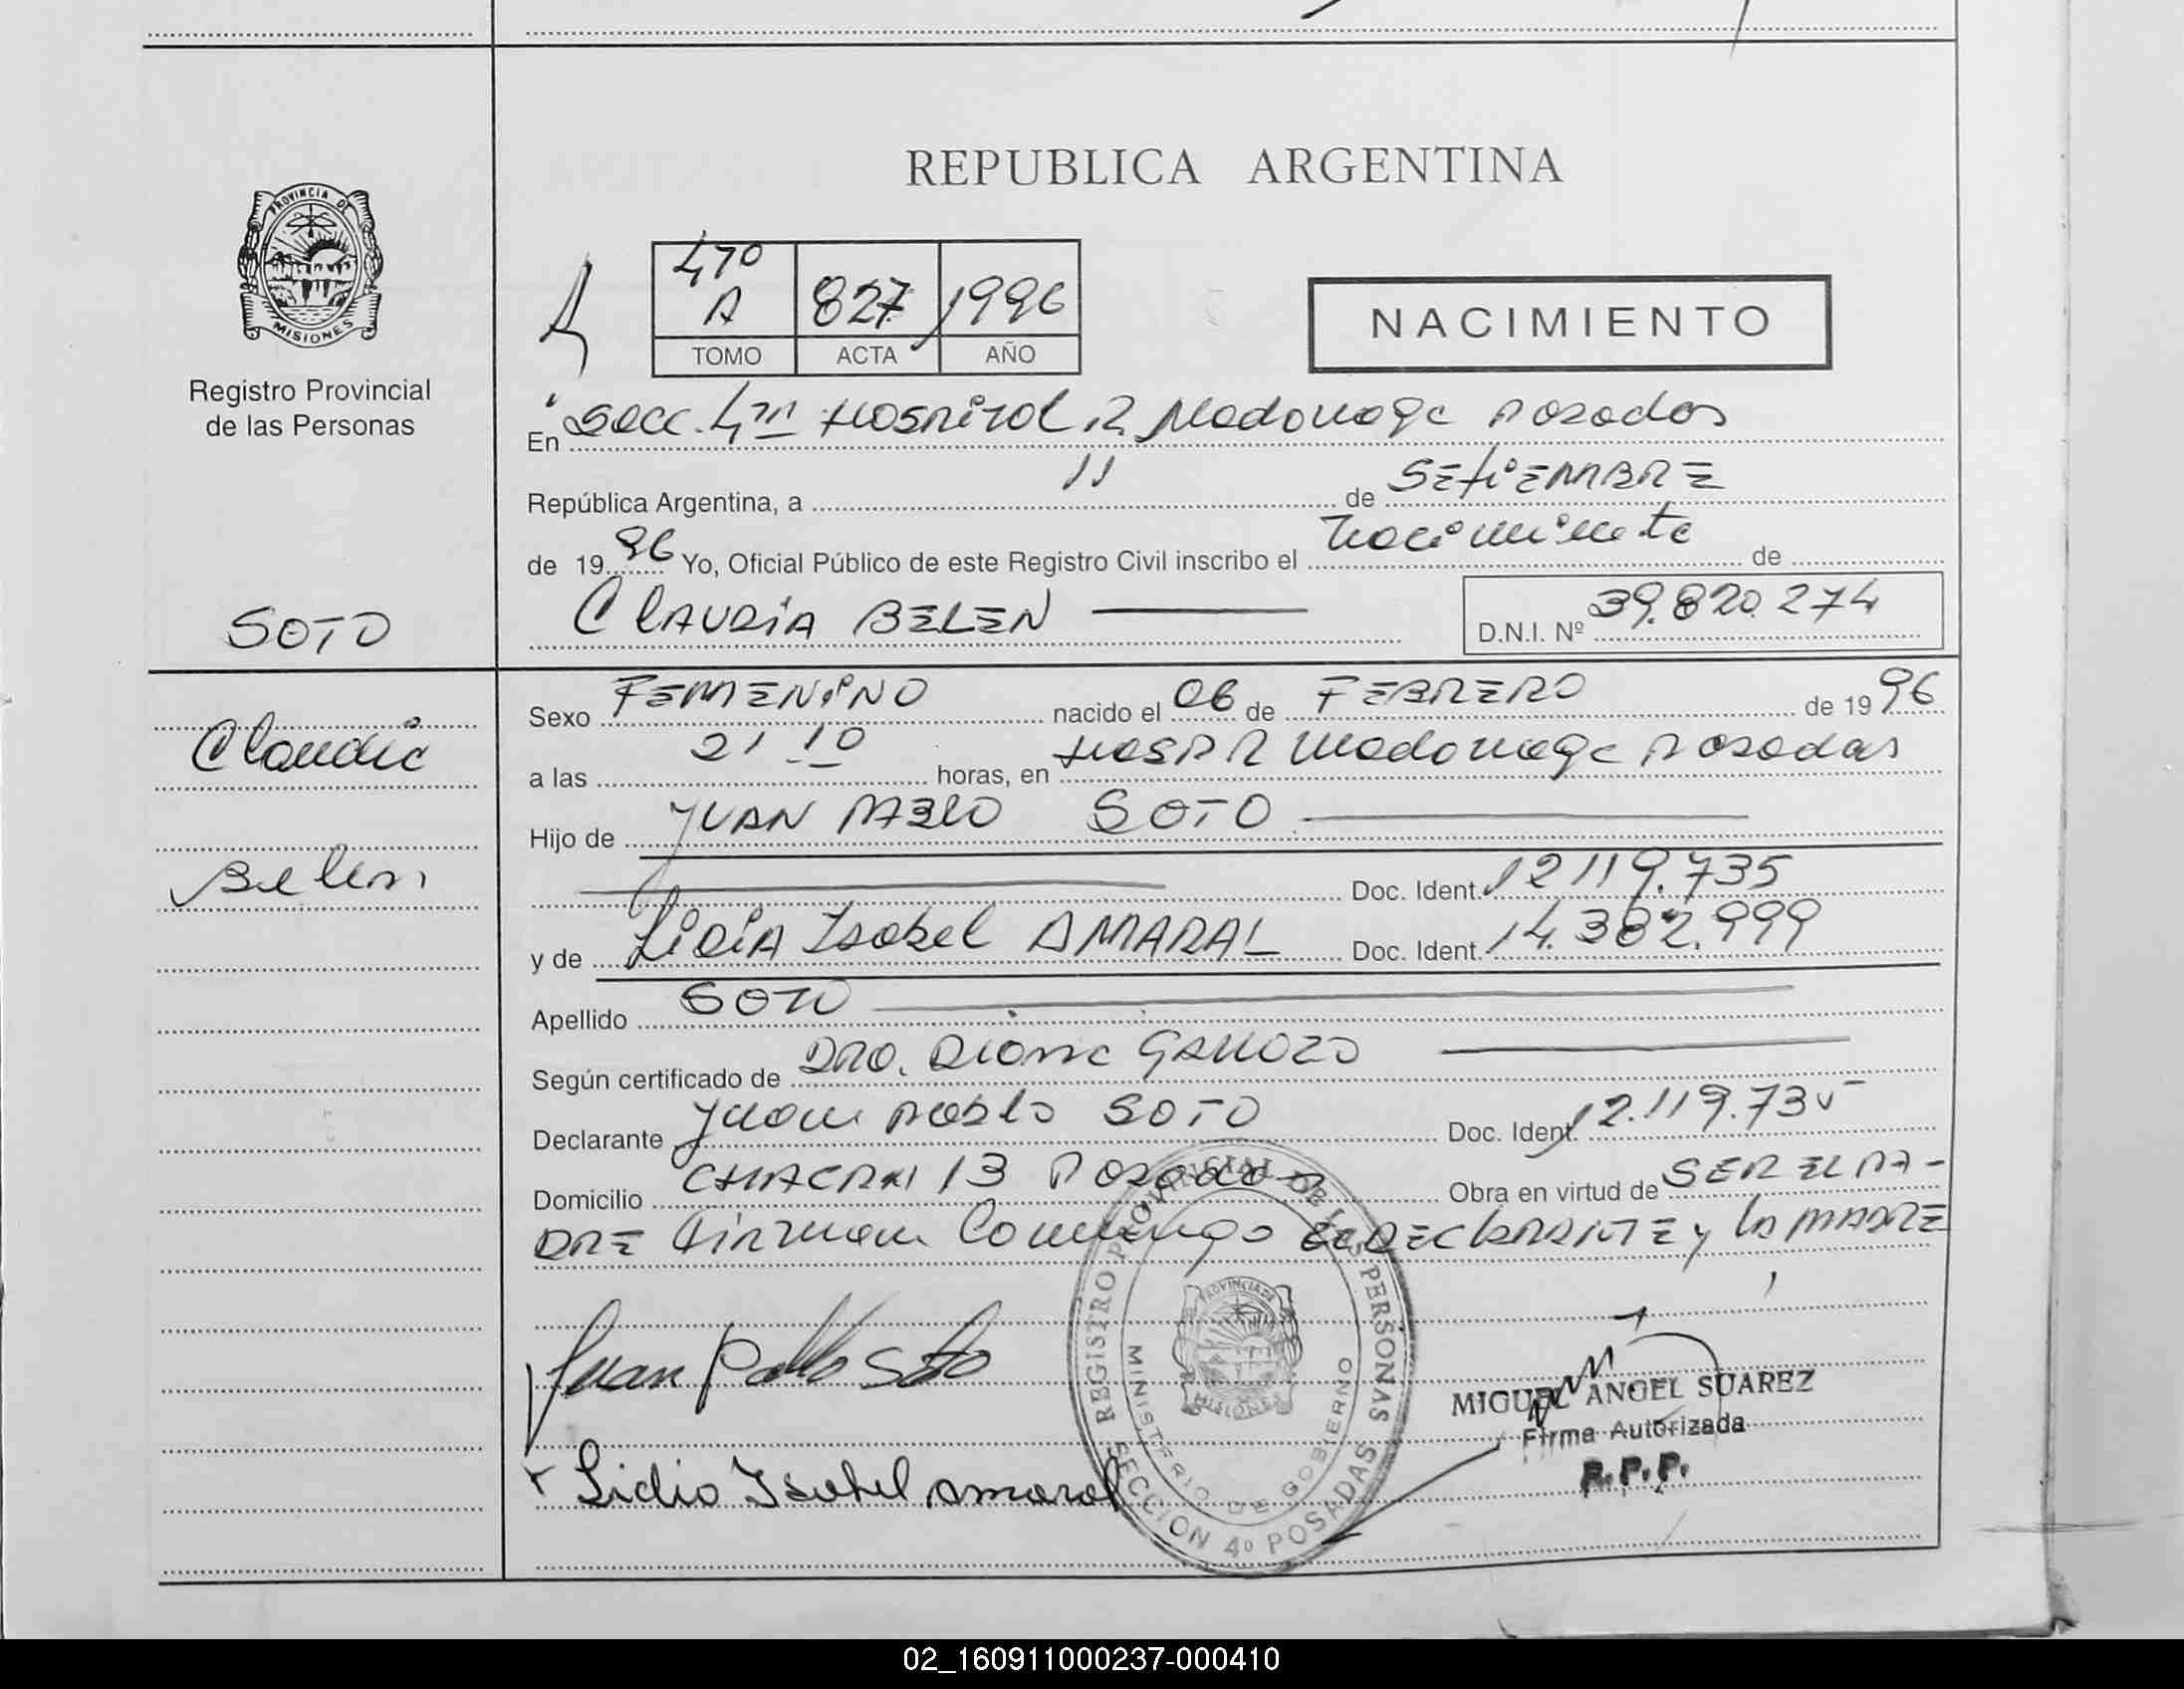 REPUBLICA ARGENTINA
PROVINCIA DE
MISIONES
Registro Provincial
de las Personas
SOTO
Claudia
Belen
A
47º
A 827 1996
TOMO ACTA AÑO
NACIMIENTO
En Secc. 4ta Hospital R Madariaga Posadas
República Argentina, a 11 de SEtiEMBRE
de 1996 Yo, Oficial Público de este Registro Civil inscribo el nacimiento de
CLAUDiA BELEN
D.N.I. Nº 39.820.274
Sexo FEMENiNO nacido el 06 de FEBRERO de 1996
a las 21 10 horas, en HOSP R Madariaga Posadas
Hijo de JUAN PABLO SOTO
Doc. Ident. 12119.735
y de LiDiA Isabel AMARAL Doc. Ident. 14.382.999
Apellido SOTO
Según certificado de DRA.
Declarante Juan Pablo SOTO Doc. Ident. 12.119.735
Domicilio CHACRA 13 Posadas Obra en virtud de SER EL PA-
DRE Firman Conmigo EL DECLARANTE y LA MADRE
Juan Pablo Soto
Lidia Isabel Amaral
REGISTRO PROVINCIAL DE LAS PERSONAS
MINISTERIO DE GOBIERNO
PROVINCIA DE
MISIONES
SECCION 4º POSADAS
MIGUEL ANGEL SUAREZ
Firma Autorizada
R.P.P.
02_160911000237-000410